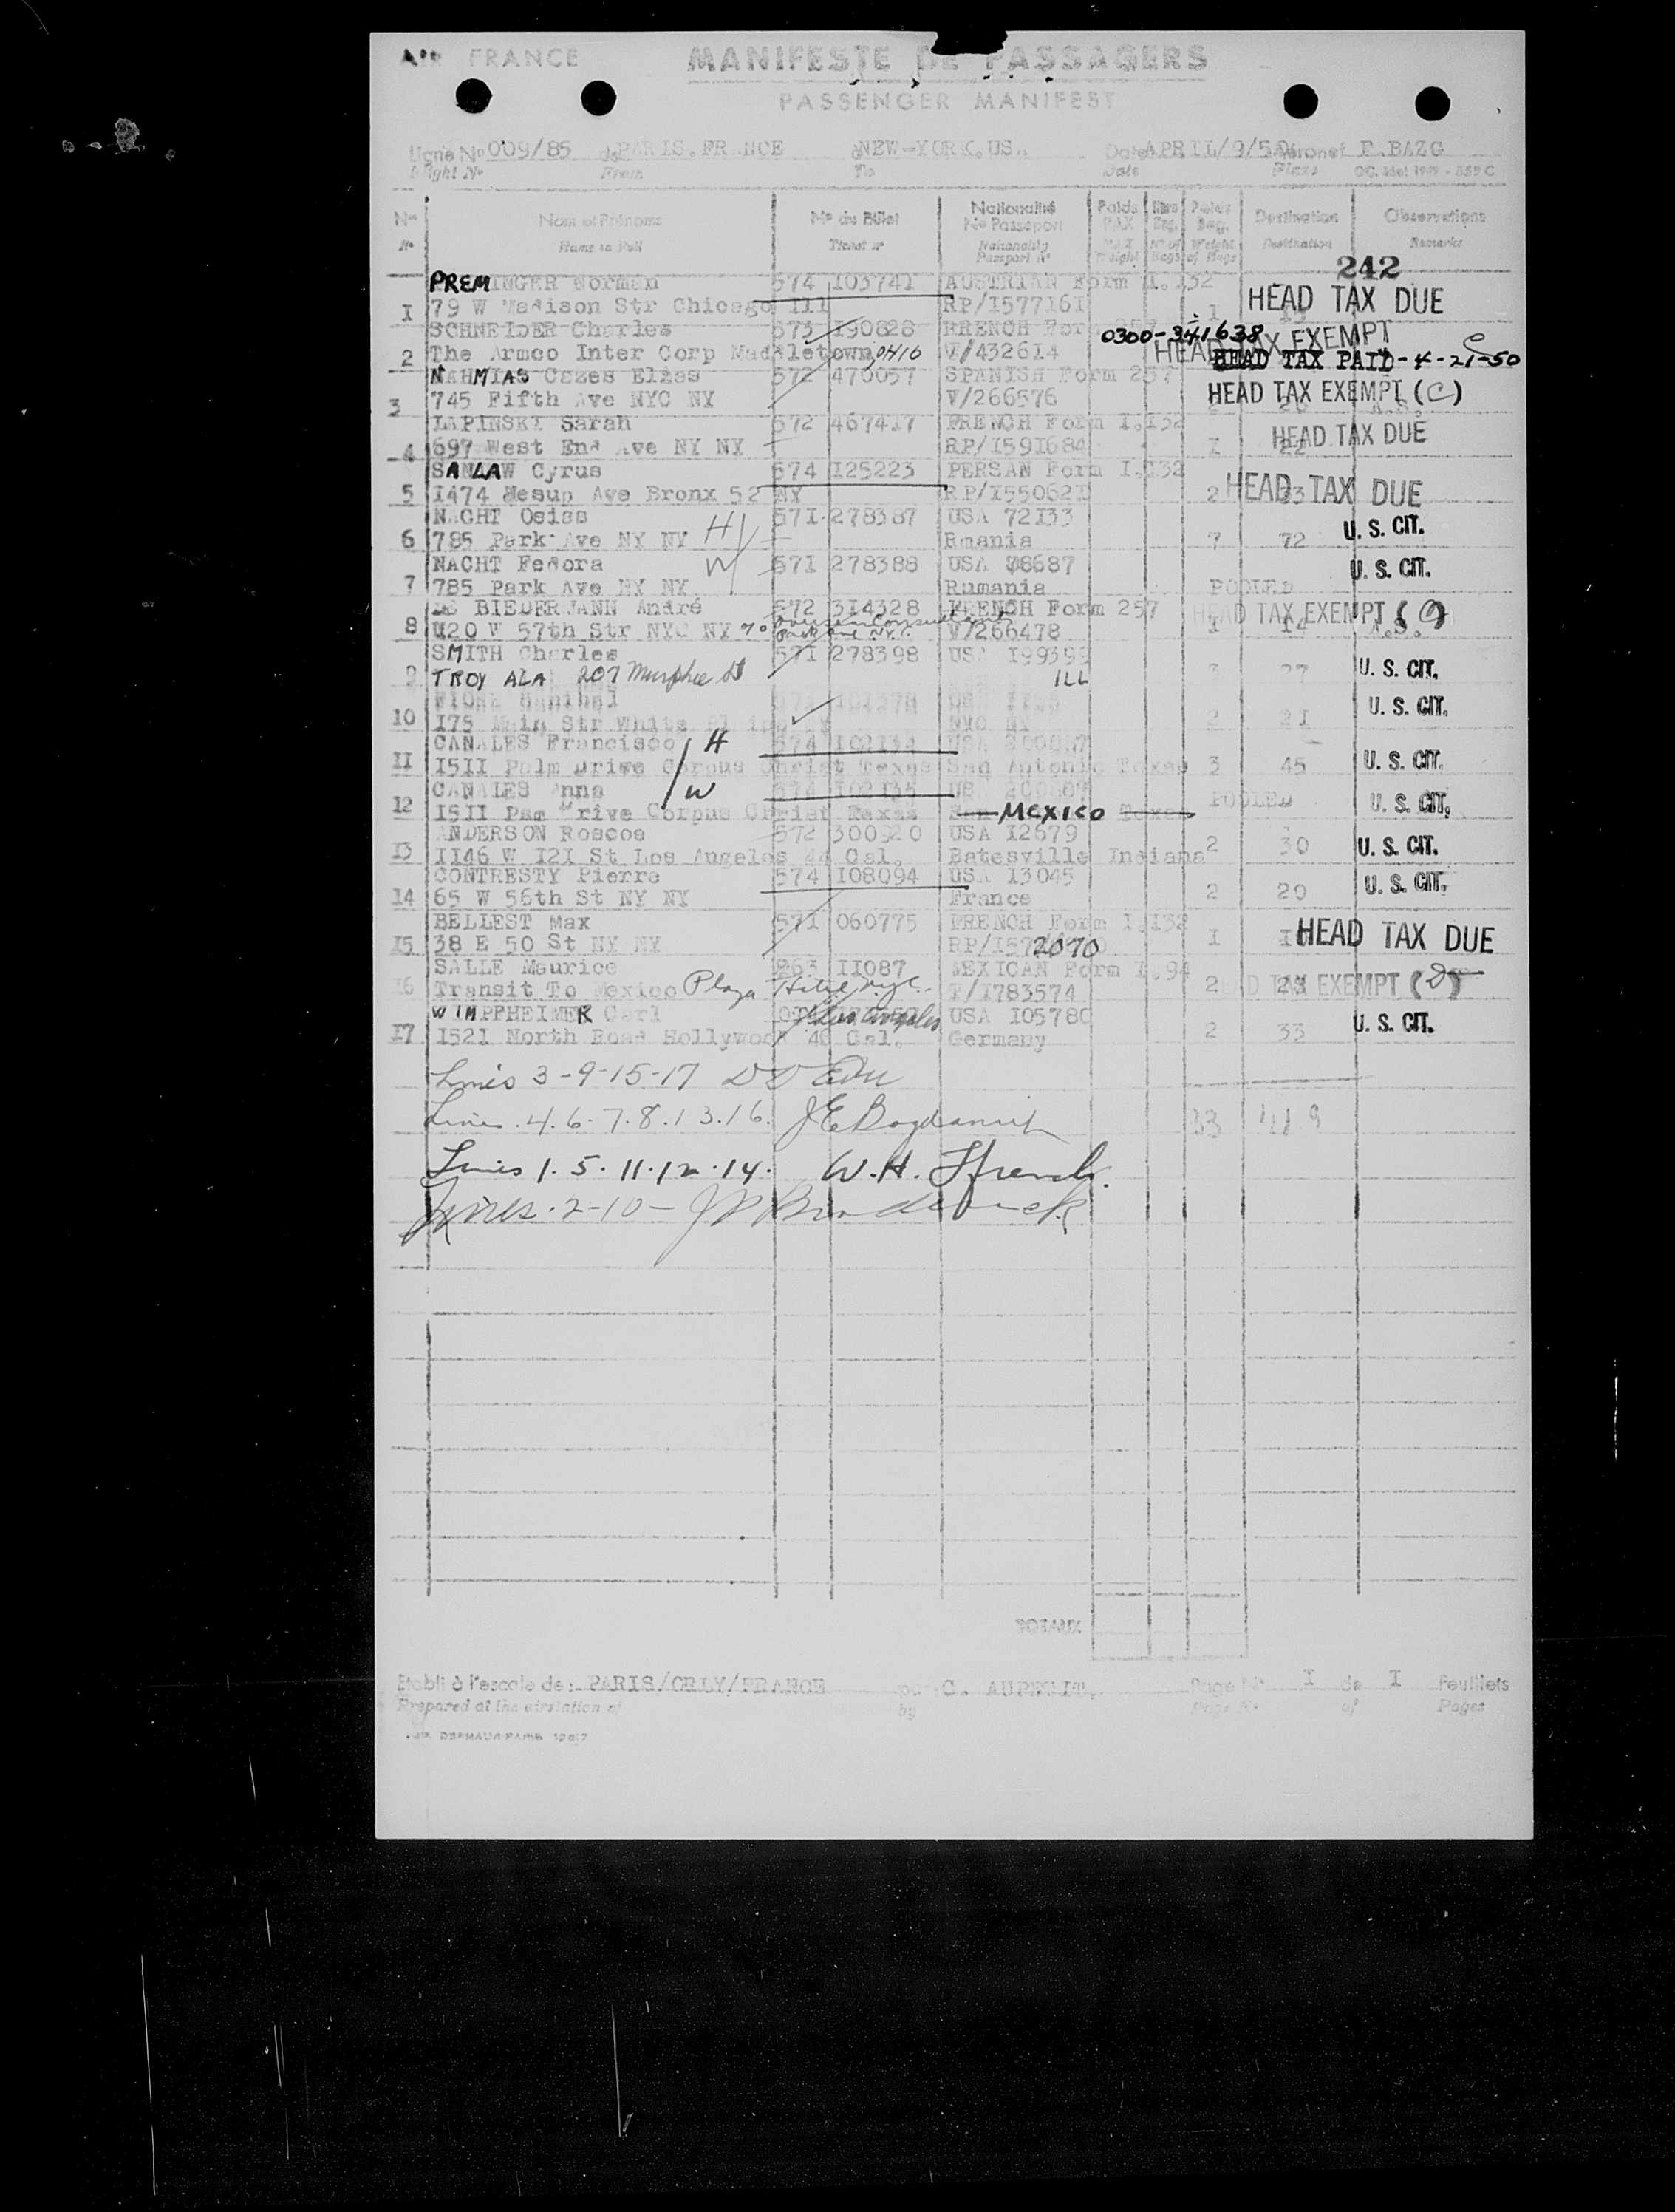 AIR FRANCE MANIFESTE DE PASSAGERS
PASSENGER MANIFEST
Ligne No 009/85 de PARIS.FRANCE à NEW-YORK.USA Date APRIL/9/50 Aéronef F.BAZG
Flight No From To Date Plane
No Nom et Prénoms No du Billet Nationalité No Passeport Poids PAX Poids Bag. Destination Observations
No Name in Full Ticket no Nationality Passport No PAX Weight No of Bags Weight of Bags Destination Remarks
242
PREMINGER Norman 574 103741 AUSTRIAN Form I.132
1 79 W Madison Str Chicago Ill RP/I577161 1 HEAD TAX DUE
SCHNEIDER Charles 573 190828 FRENCH Form 257 0300-341638 HEAD TAX EXEMPT C
2 The Armco Inter Corp Maddletown OHIO V/432614 HEAD TAX PAID-4-21-50
NAHMIAS Cazes Elias 572 470057 SPANISH Form 257
3 745 Fifth Ave NYC NY V/266576 HEAD TAX EXEMPT (C)
LAPINSKI Sarah 572 467417 FRENCH Form I.132
4 697 West End Ave NY NY RP/I591684 1 22 HEAD TAX DUE
SANLAW Cyrus 574 125223 PERSAN Form I.132
5 1474 Mesup Ave Bronx 52 NY RP/I550621 2 HEAD TAX DUE
NACHT Osias 571 278387 USA 72133
6 785 Park Ave NY NY H Rmania 7 72 U. S. CIT.
NACHT Fedora W 571 278388 USA 78687
7 785 Park Ave NY NY Rumania POOLED U. S. CIT.
DE BIEDERMANN André 572 314328 FRENCH Form 257
8 420 W 57th Str NYC NY V/266478 1 14 HEAD TAX EXEMPT (C)
SMITH Charles 571 278398 USA 199399
9 TROY ALA 207 Murphee St ILL 3 27 U. S. CIT.
10 175 Main Str White Plains NY NYC NY 2 21 U. S. CIT.
CANALES Francisco H 574 102134 USA 200867
11 1511 Palm Drive Corpus Christ Texas San Antonio Texas 3 45 U. S. CIT.
CANALES Anna W 574 102135 USA 200867
12 1511 Pam Drive Corpus Christ Texas MEXICO POOLED U. S. CIT.
ANDERSON Roscoe 572 300920 USA 12679
13 1146 W 121 St Los Angeles 44 Cal. Batesville Indiana 2 30 U. S. CIT.
CONTRESTY Pierre 574 108094 USA 13045
14 65 W 56th St NY NY France 2 20 U. S. CIT.
BELLEST Max 571 060775 FRENCH Form I.132
15 38 E 50 St NY NY RP/I572070 1 HEAD TAX DUE
SALLE Maurice 263 11087 MEXICAN Form I.94
16 Transit To Mexico Plaza Hotel NYC. T/I783574 2 HEAD TAX EXEMPT (D)
WIMPFHEIMER Carl USA 105780
17 1521 North Road Hollywood 46 Cal. Los Angeles Germany 2 33 U. S. CIT.
Lines 3-9-15-17
Lines 4.6-7.8.13.16. 33 419
Lines 1.5.11.12.14. W.H. Ffrench.
Lines 2-10-
TOTAUX
Etabli à l'escale de: PARIS/ORLY/FRANCE par C. AUPETIT. Page No I de I Feuillets
Prepared at the airstation of by Page No of Pages